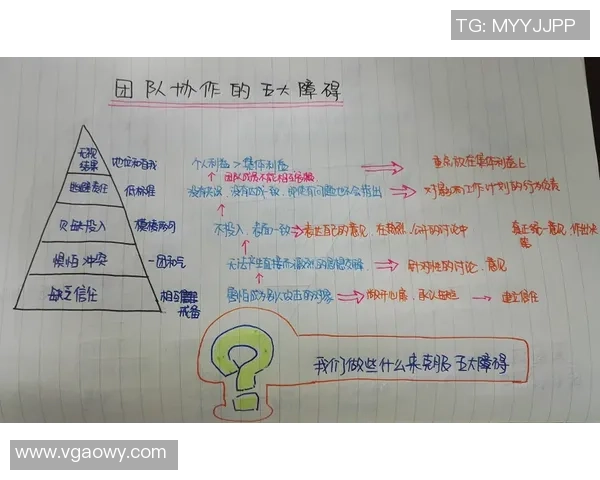 TG: MYYJJPP
团队协作的五大障碍
无视
结果
地位和自我
个人利益>集体利益
重点放在集体利益上
团队成员不能相互
逃避责任
低标准
没有达成一致,即使有问题也不会指出
对影响工作计划的行为负责
欠缺投入
模棱两可
不投入,表面一致
表达自己的意见,在激烈、公开的讨论中
真正统一意见,作出决
惧怕冲突
一团和气
无法产生直接而激烈的思想交锋
针对性的讨论、意见
缺乏信任
相互
戒备
害怕成为别人攻击的对象
敞开心扉,承认
建立信任
我们做些什么来克服五大障碍
www.vgaowy.com